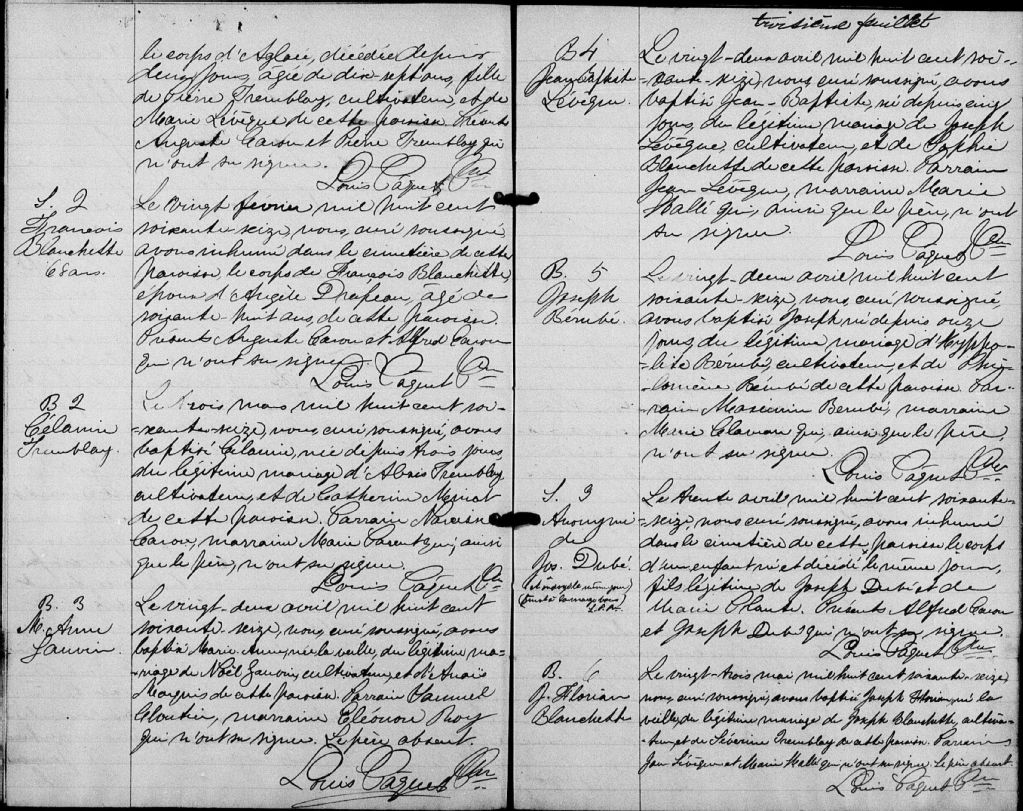 le corps d'Aglaé, décédée depuis
deux jours, âgée de dix-sept ans, fille
de Pierre Tremblay, cultivateur, et de
Marie Lévêque de cette paroisse. Présents
Auguste Caron et Pierre Tremblay qui
n'ont su signer.
Louis Paquet Ptre
S. 2
François
Blanchette
68 ans.
Le vingt février mil huit cent
soixante-seize, nous, curé soussigné
avons inhumé dans le cimetière de cette
paroisse, le corps de François Blanchette,
époux d'Angèle Drapeau, âgé de
soixante huit ans, de cette paroisse.
Présents Auguste Caron et Alfred Caron
qui n'ont su signer.
Louis Paquet Ptre
B 2
Célanie
Tremblay.
Le trois mars mil huit cent soi-
xante-seize, nous, curé soussigné, avons
baptisé Célanie, née depuis trois jours,
du légitime mariage d'Alexis Tremblay
cultivateur, et de Catherine
de cette paroisse. Parrain Narcisse
Caron, marraine Marie Parent qui, ainsi
que le père, n'ont su signer.
Louis Paquet Ptre
B. 3
M. Anne
Gauvin.
Le vingt-deux avril mil huit cent
soixante-seize, nous, curé soussigné, avons
baptisé Marie Anne, née la veille, du légitime ma-
riage de Noël Gauvin, cultivateur, et d'Anaïs
Marquis de cette paroisse. Parrain
Cloutier, marraine Eléonore Roy
qui n'ont su signer. Le père absent.
Louis Paquet Ptre
troisième feuillet
B 4
Jean Baptiste
Lévêque.
Le vingt-deux avril mil huit cent soi-
xante-seize, nous, curé soussigné, avons
baptisé Jean-Baptiste, né depuis cinq
jours, du légitime mariage de Joseph
Lévêque, cultivateur, et de Sophie
Blanchette de cette paroisse. Parrain
Jean Lévêque, marraine Marie
Hallé qui, ainsi que le père, n'ont
su signer.
Louis Paquet Ptre
B. 5
Joseph
Bérubé.
Le vingt-deux avril mil huit cent
soixante-seize, nous, curé soussigné,
avons baptisé Joseph né depuis onze
jours, du légitime mariage d'Hyppo-
lite Bérubé, cultivateur, et de Phi-
lomène Bérubé de cette paroisse. Par-
rain Maximin Bérubé, marraine
Marie qui, ainsi que le père,
n'ont su signer.
Louis Paquet Ptre
S. 3
Anonyme
de
Jos. Dubé.
Le trente avril, mil huit cent soixante-
seize, nous curé soussigné, avons inhumé
dans le cimetière de cette paroisse le corps
d'un enfant né et décédé le même jour,
fils légitime de Joseph Dubé et de
Marie Plante. Présents Alfred Caron
et Joseph Dubé qui n'ont su signer.
Louis Paquet Ptre
B. 6
J. Florian
Blanchette
Le vingt-trois mai, mil huit cent soixante-seize
nous, curé soussigné, avons baptisé Joseph Florian, né la
veille, du légitime mariage de Joseph Blanchette, cultiva-
teur, et de Séverine Tremblay de cette paroisse. Parrain
Jean Lévêque et Marie Hallé qui n'ont su signer. Le père absent.
Louis Paquet Ptre